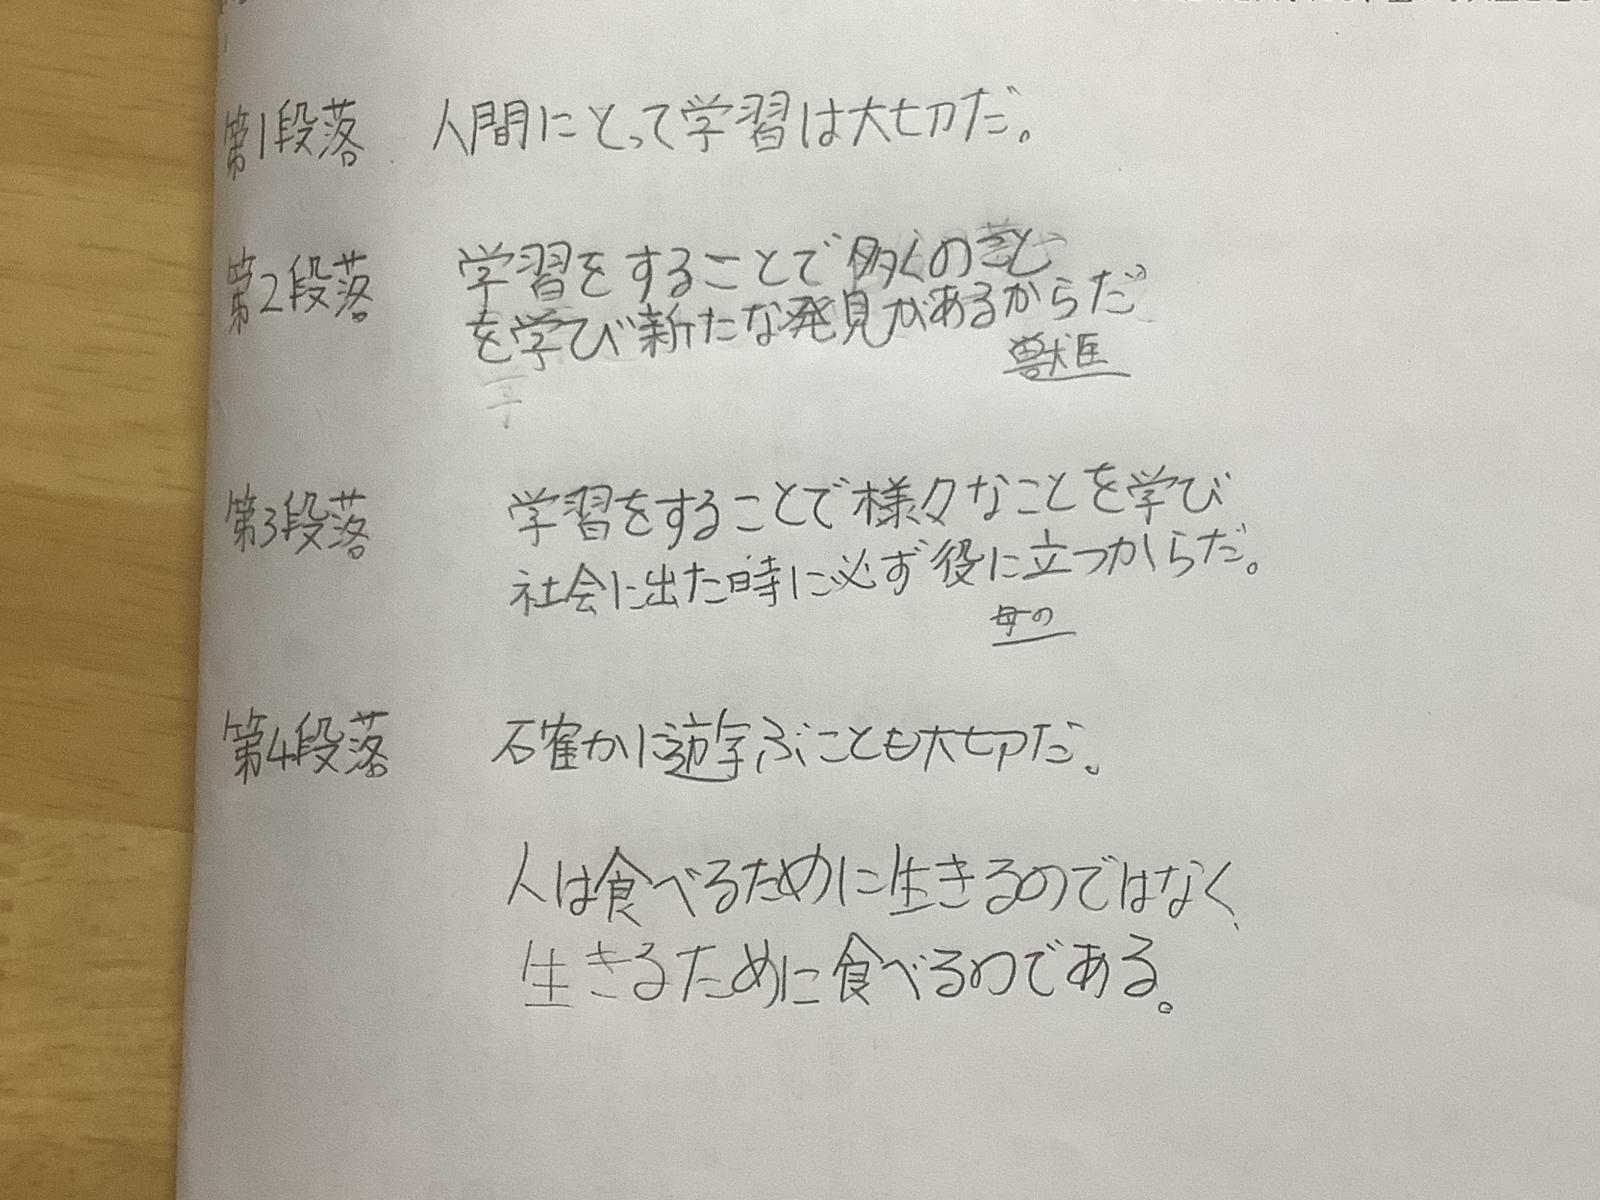 第1段落 人間にとって学習は大切だ。
第2段落 学習をすることで多くのこと
を学び新たな発見があるからだ
獣医
第3段落 学習をすることで様々なことを学び
社会に出た時に必ず役に立つからだ。
母の
第4段落 確かに遊ぶことも大切だ。
人は食べるために生きるのではなく、
生きるために食べるのである。